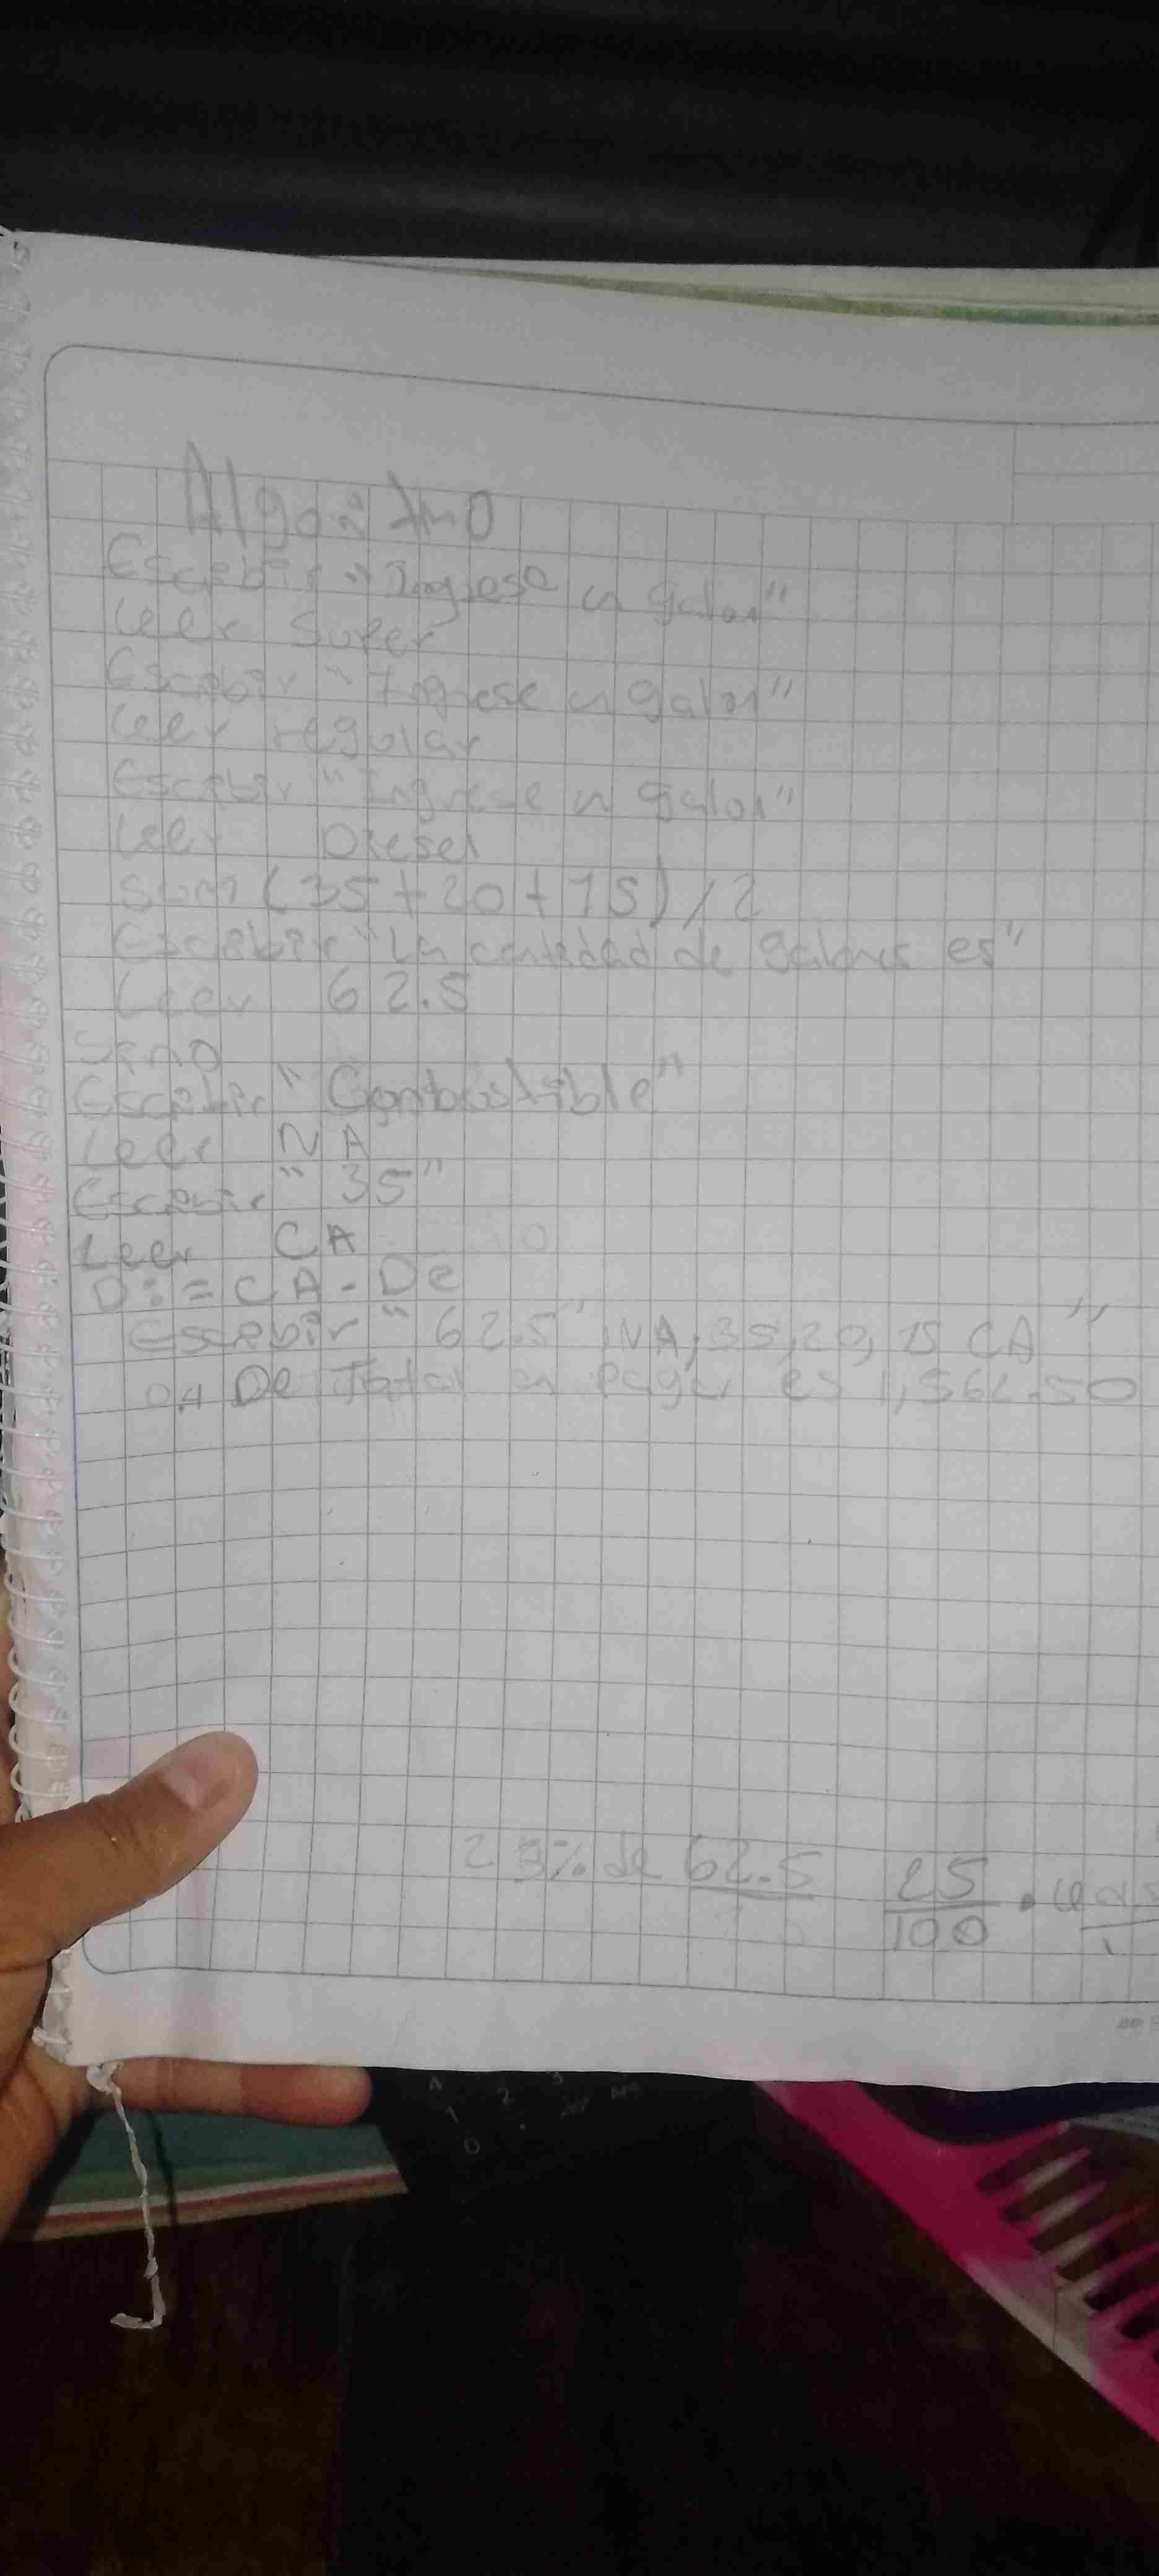 Algoritmo
Escrebir "Ingrese un galon"
Leer Super
Escrebir "Ingrese un galon"
Leer regular
Escrebir "Ingrese un galon"
Leer Diesel
Sum (35 + 20 + 75) / 2
Escrebir "La cantidad de galones es"
Leer 62.5
Seno
Escrebir "Combustible"
Leer NA
Escrebir "35"
Leer CA
D:= CA - De
Escrebir "62.5" NA, 35, 20, 15 CA"
De Total a Pagar es 1,562.50
23% de 62.5
25
100